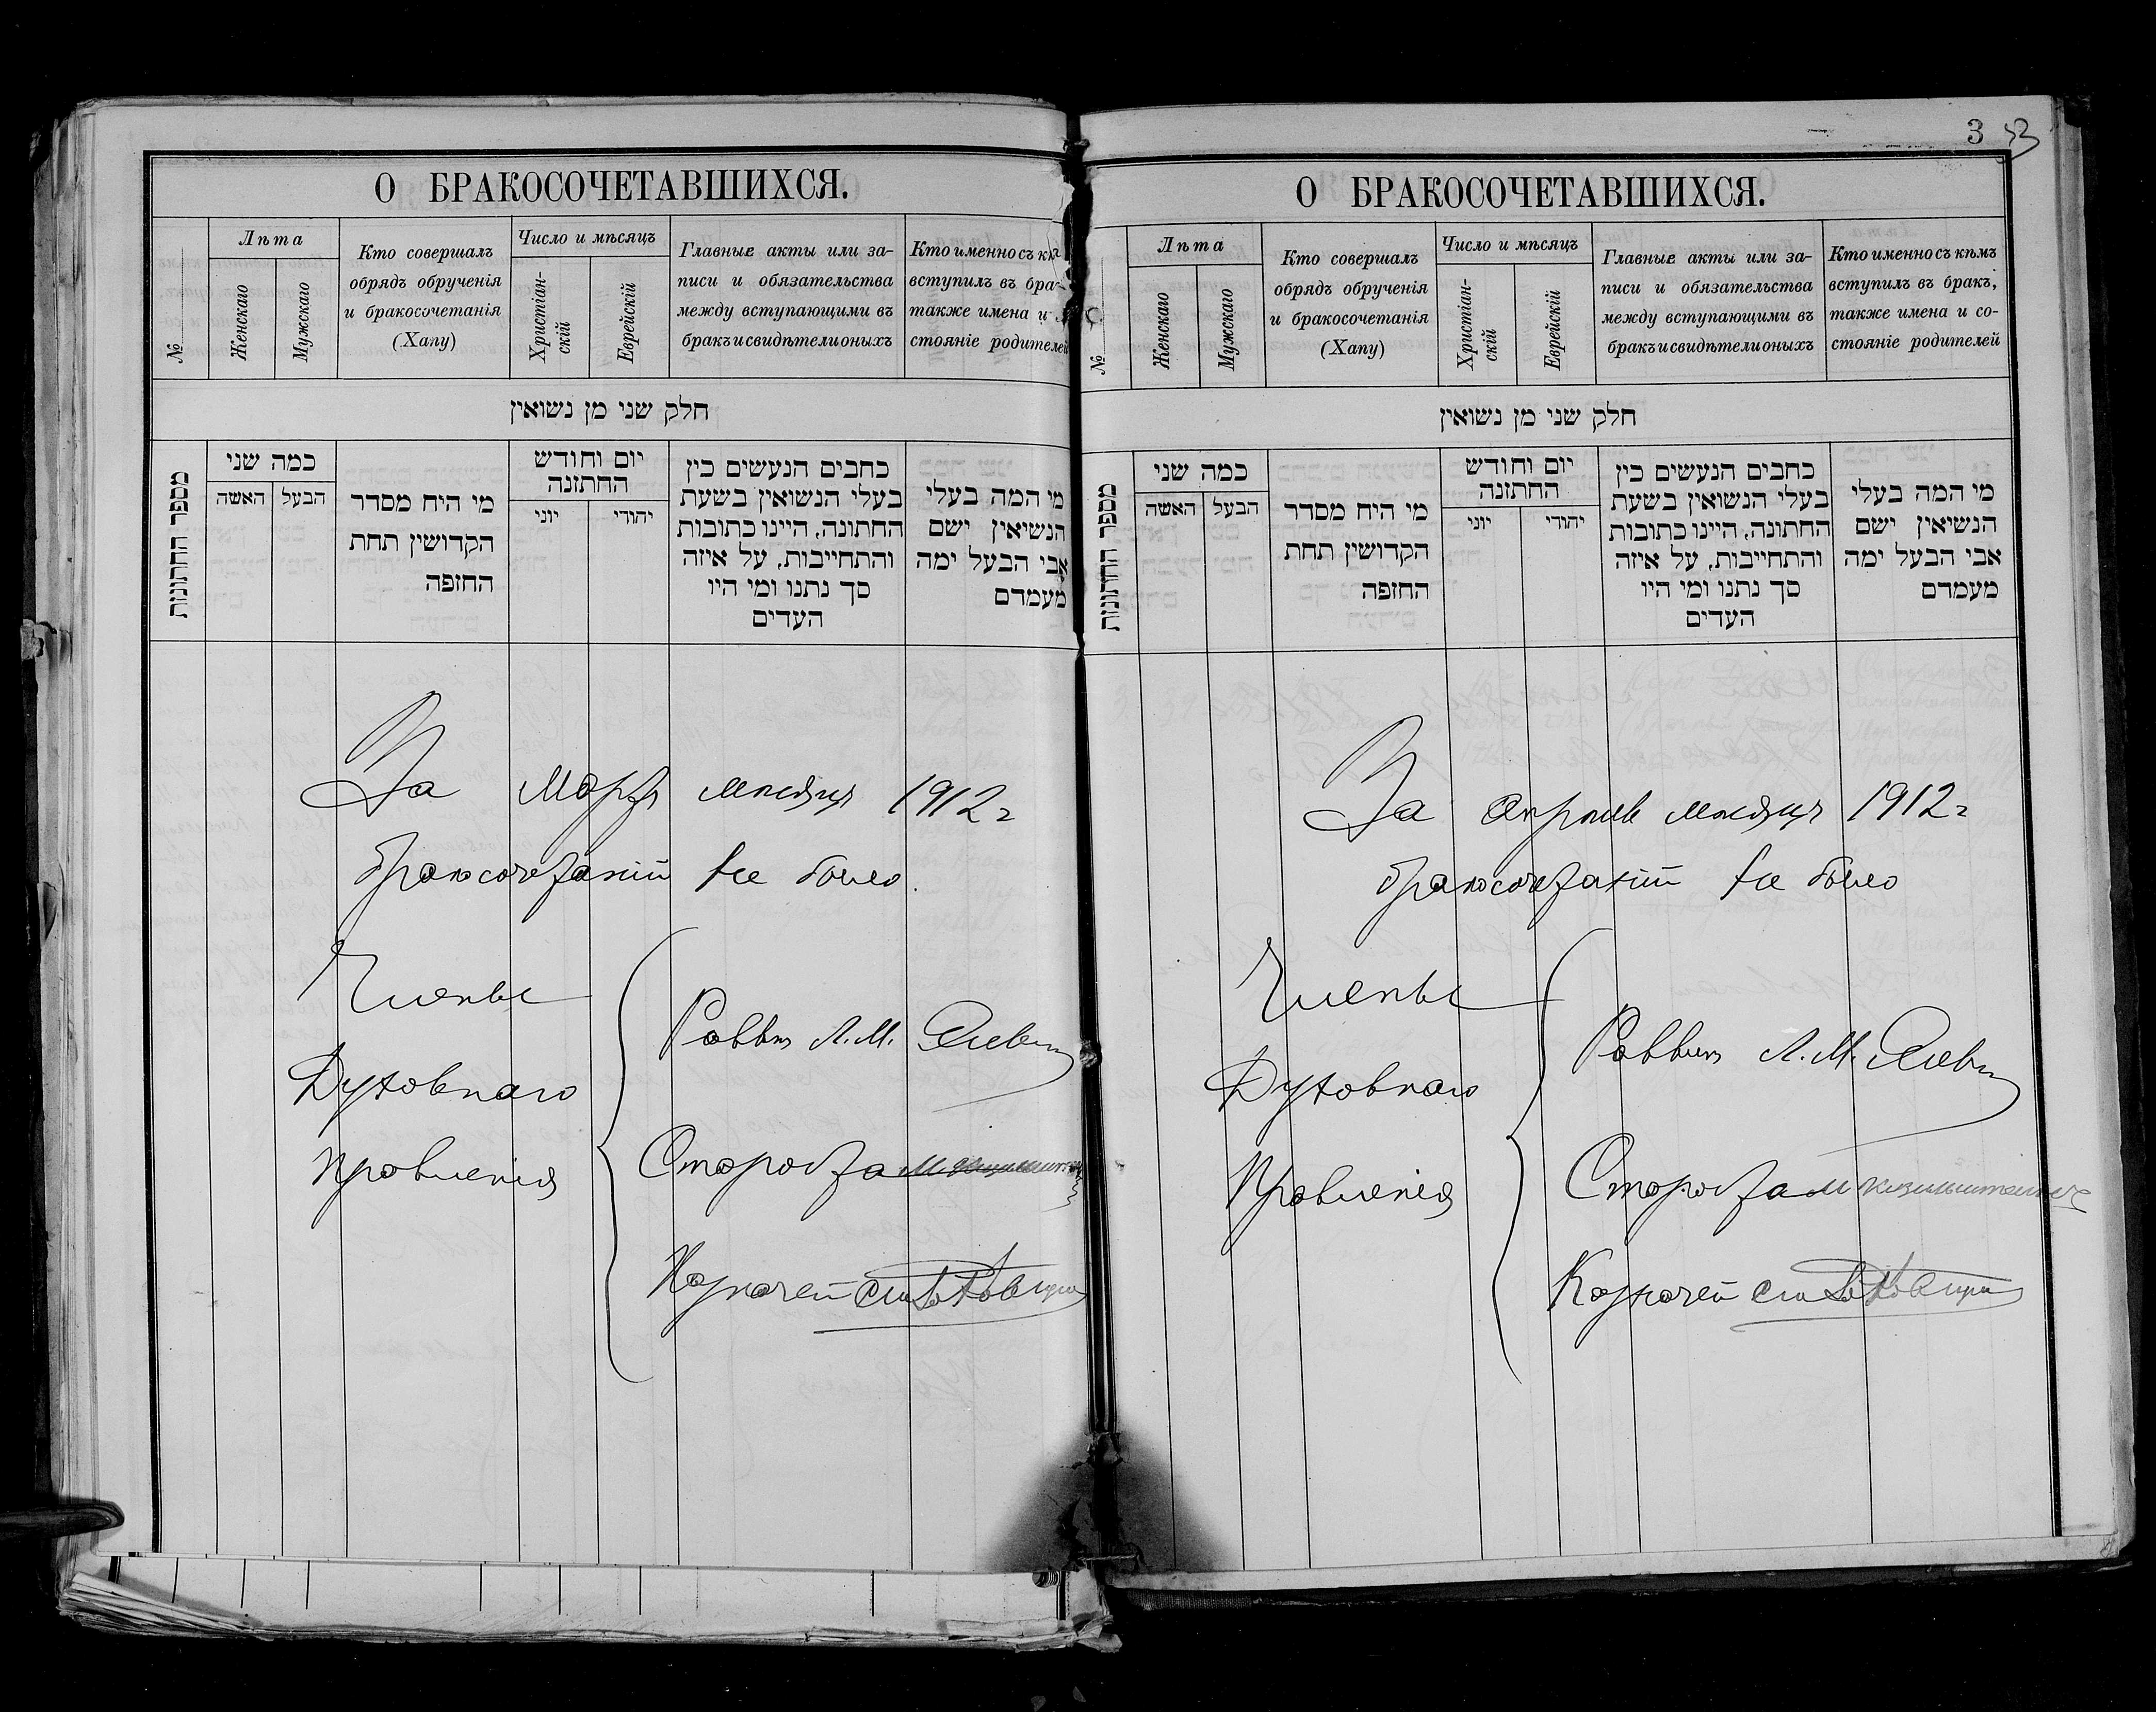 О БРАКОСОЧЕТАВШИХСЯ.
№
Лѣта
Женскаго
Мужскаго
Кто совершалъ
обрядъ обрученія
и бракосочетанія
(Хапу)
Число и мѣсяцъ
Христіан-
скій
Еврейскій
Главные акты или за-
писи и обязательства
между вступающими въ
бракъ и свидѣтели оныхъ
Кто именно съ
вступилъ въ бра-
также имена и
стояніе родителей
חלק שני מן נשואין
מספר החתונות
כמה שני
האשה
הבעל
מי היח מסדר
הקדושין תחת
החופה
יום וחודש
החתונה
יוני
יהודי
כתבים הנעשים כין
בעלי הנשואין בשעת
החתונה, היינו כתובות
והתחייבות, על איזה
סך נתנו ומי היו
העדים
מי המה בעלי
הנשיאין ישם
אבי הבעל ימה
מעמדם
За Мартъ мѣсяцъ 1912 г
бракосочетаній не было.
Члены
Духовнаго
Правленія
Раввин Л. М.
Староста
Казначей
3
О БРАКОСОЧЕТАВШИХСЯ.
№
Лѣта
Женскаго
Мужскаго
Кто совершалъ
обрядъ обрученія
и бракосочетанія
(Хапу)
Число и мѣсяцъ
Христіан-
скій
Еврейскій
Главные акты или за-
писи и обязательства
между вступающими въ
бракъ и свидѣтели оныхъ
Кто именно съ кѣмъ
вступилъ въ бракъ,
также имена и со-
стояніе родителей
חלק שני מן נשואין
מספר החתונות
כמה שני
האשה
הבעל
מי היח מסדר
הקדושין תחת
החופה
יום וחודש
החתונה
יוני
יהודי
כתבים הנעשים כין
בעלי הנשואין בשעת
החתונה, היינו כתובות
והתחייבות, על איזה
סך נתנו ומי היו
העדים
מי המה בעלי
הנשיאין ישם
אבי הבעל ימה
מעמדם
За Апрѣль мѣсяцъ 1912 г
бракосочетаній не было
Члены
Духовнаго
Правленія
Раввин Л. М.
Староста
Казначей